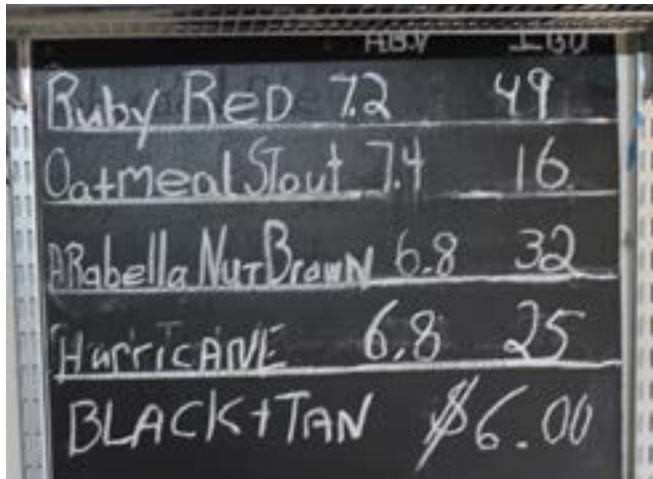 A.B.V IBU
Ruby RED 7.2 49
Oatmeal Stout 7.4 16
ARabella NutBrowN 6.8 32
HurriCANE 6.8 25
BLACK+TAN $6.00